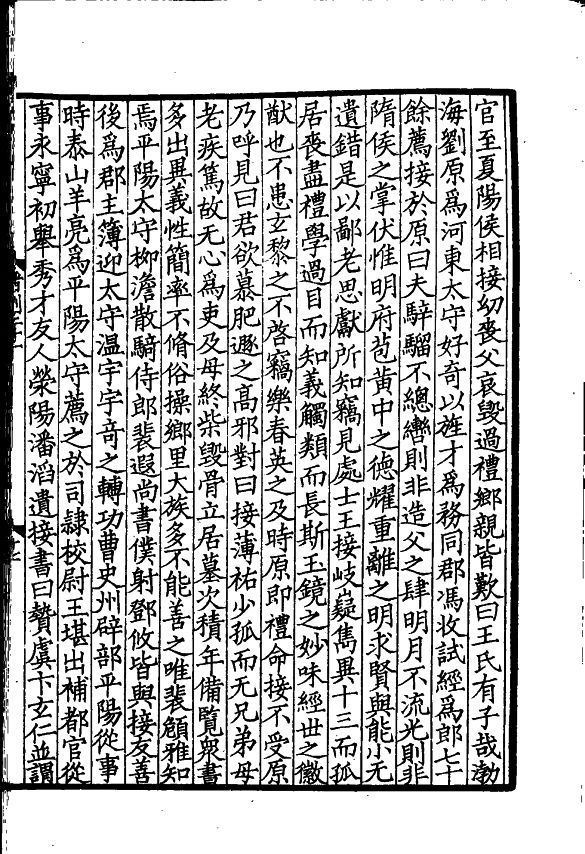 官至夏陽侯相接幼喪父哀毀過禮鄉親皆歎曰王氏有子哉勃
海劉原爲河東太守好奇以旌才爲務同郡馮收試經爲郎七十
餘薦接於原曰夫騂騮不總轡則非造父之肆明月不流光則非
隋侯之掌伏惟明府苞黄中之德耀重離之明求賢與能小无
遺錯是以鄙老思獻所知竊見處士王接岐嶷雋異十三而孤
居喪盡禮學過目而知義觸類而長斯玉鏡之妙味經世之徽
猷也不患玄黎之不啓竊樂春英之及時原即禮命接不受原
乃呼見曰君欲慕肥遯之高邪對曰接薄祐少孤而无兄弟母
老疾篤故无心爲吏及母終柴毀骨立居墓次積年備覽衆書
多出異義性簡率不脩俗操鄉里大族多不能善之唯裴頠雅知
焉平陽太守栁澹散騎侍郎裴遐尚書僕射鄧攸皆與接友善
後爲郡主簿迎太守温宇宇奇之轉功曹史州辟部平陽從事
時泰山羊亮爲平陽太守薦之於司隸校尉王堪出補都官從
事永寧初舉秀才友人滎陽潘滔遺接書曰贄虞卞玄仁並謂